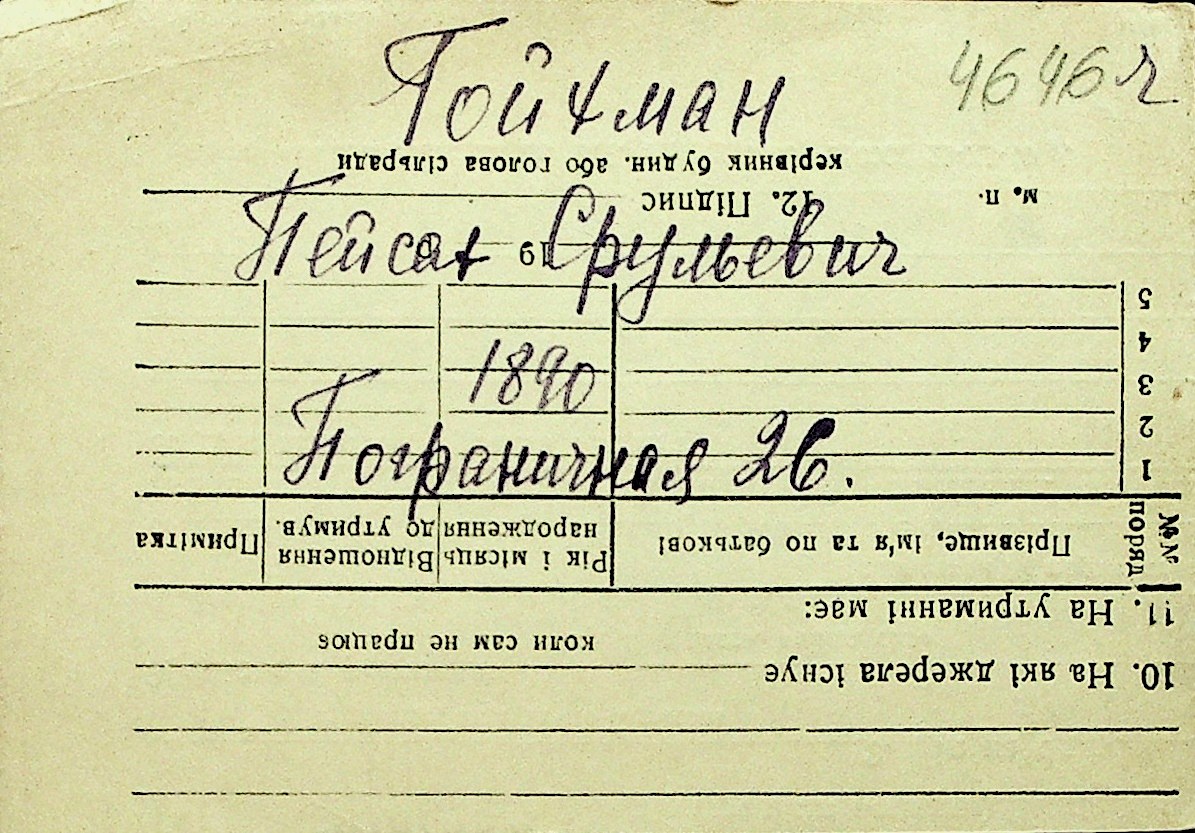 4646 ч
Гойхман
Пейсах Срулевич
1890
Пограничная 26.
10. На які джерела існує
коли сам не працює
11. На утриманні має:
№№ поряд
Прізвище, ім'я та по батькові
Рік і місяць народження
Відношення до утримув.
Примітка
1
2
3
4
5
19
12. Підпис
м. п.
керівник будин. або голова сільради